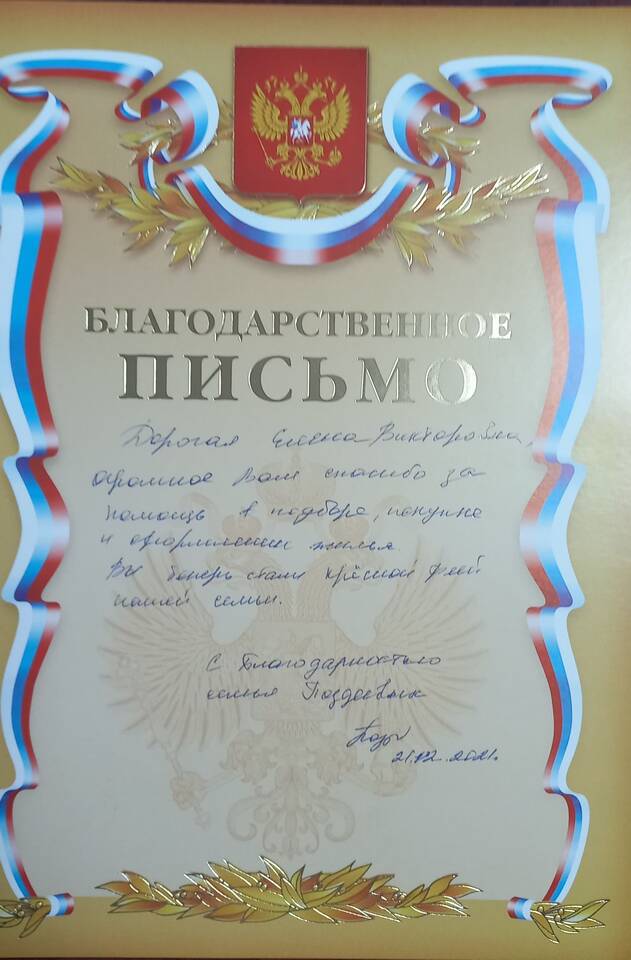 БЛАГОДАРСТВЕННОЕ
ПИСЬМО
Дорогая Елена Викторовна,
огромное Вам спасибо за
помощь в подборе, покупке
и оформлении жилья.
Вы теперь стали крёстной феей
нашей семьи.
С Благодарностью
семья Поздеевых
21.12.2021.